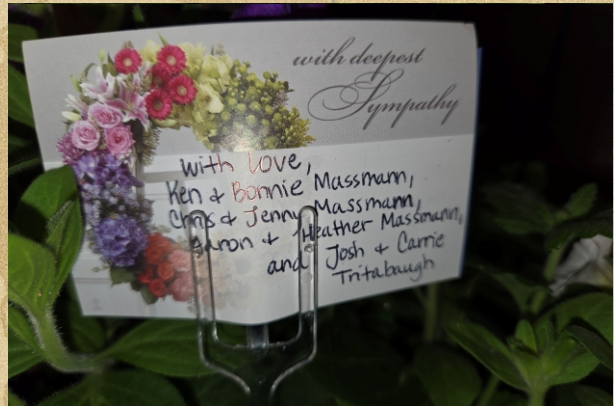 with deepest
Sympathy
with love,
Ken & Bonnie Massmann,
Chris & Jenny Massmann,
Aaron & Heather Massmann,
and Josh & Carrie
Tritabaugh